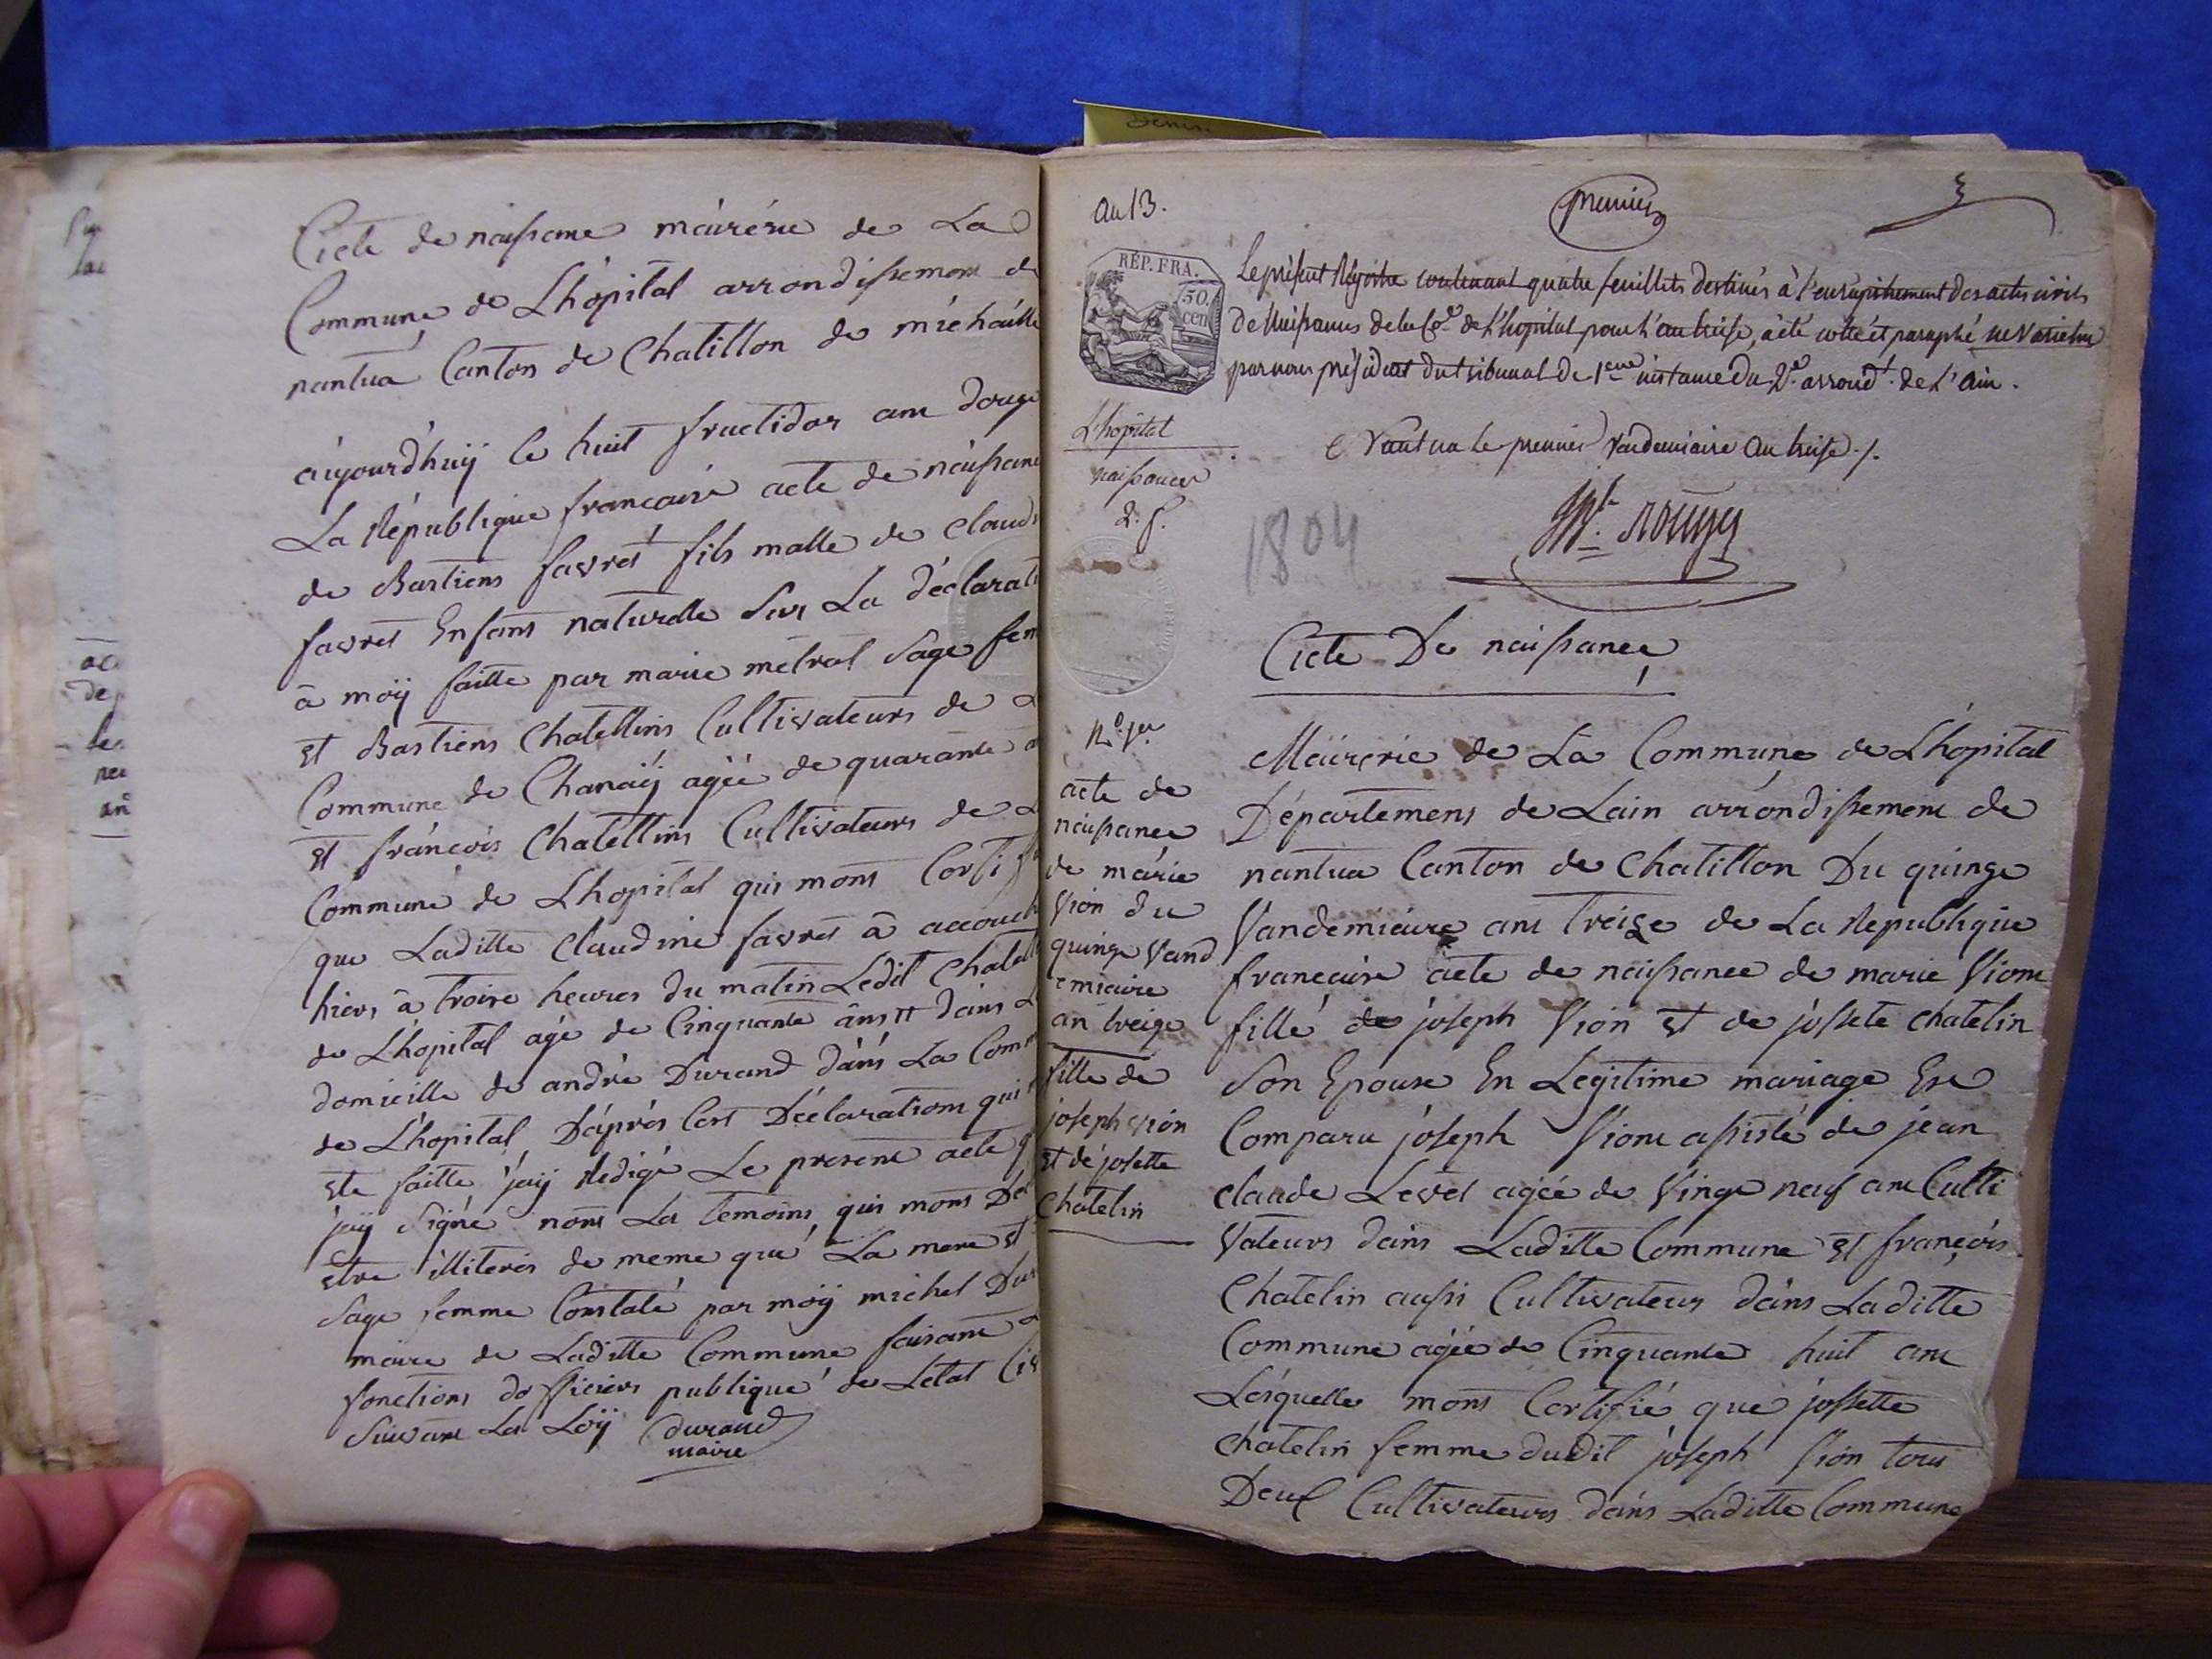 acte de naissance mairérie de La
Commune de Lhôpital arrondissement de
nantua Canton de Chatillon de michaille
aujourd'huÿ le huit fructidor ann douze
La République francaise acte de naissance
de Bastiens favret fils malle de claud
favret Enfant naturelle Sur La déclarati
à moÿ faitte par marie métral Sage fem
et Bastiens Chatellins Cultivateurs de
Commune de Chanaÿ agée de quarante
et francois Chatellins Cultivateurs de
Commune de Lhopital qui mont Certi
que Laditte Claudine favret à accouch
hiers à troire heures du matin Ledit Chatell
de Lhopital agé de Cinquante âns dans
domicille de andré Durand dans La Comm
de Lhopital Dâprès Cest Déclarations qui
ete faitte jaÿ Redigé Le present acte
jaÿ Signé nont Les temoins qui mont
etre illiterés de meme que La mere et
Sage femme Constaté par moÿ michel Dur
maire de Laditte Commune faisant
fonctions dofficiers publique de Letat Civ
Suivant La Loÿ durand
maire
Denis
an 13.
premier
RÉP. FRA.
50.
cen
Le présent Régistre contenant quatre feuillets destinés à l'enregistrement des actes civils
de Naissances de la Co.e de L'hopital pour l'an treise, a été cotté et paraphé ne varietur
par nous président du tribunal de 1ere instance du 2.e arrond.t de L'ain.
a Nantua le premier Vendemiaire an treise.
L'hôpital
naissances
2. f.
1804
acte De naissance
N.o 1er
acte de
naissance
de marie
Vion du
quinze Vand
emiaire
an treize
fille de
joseph vion
et de josette
Chatelin
Mairerie de La Commune de Lhôpital
Département de Lain arrondissement de
nantua Canton de Chatillon Du quinze
Vandemiaire ans treize de La Republique
francaise acte de naissance de marie Vion
fille de joseph Vion et de jossete chatelin
Son Epouse En Legitime mariage Est
Comparu joseph Vion assisté de jean
claude Levet agée de Vingt neuf ans Culti
Vateurs dans Laditte Commune et françois
Chatelin aussi Cultivateur dans Laditte
Commune agée de Cinquante huit ans
Lesquelles mont Certifié que jossette
chatelin femme dudit joseph Vion tous
Deux Cultivateurs dans Laditte Commune